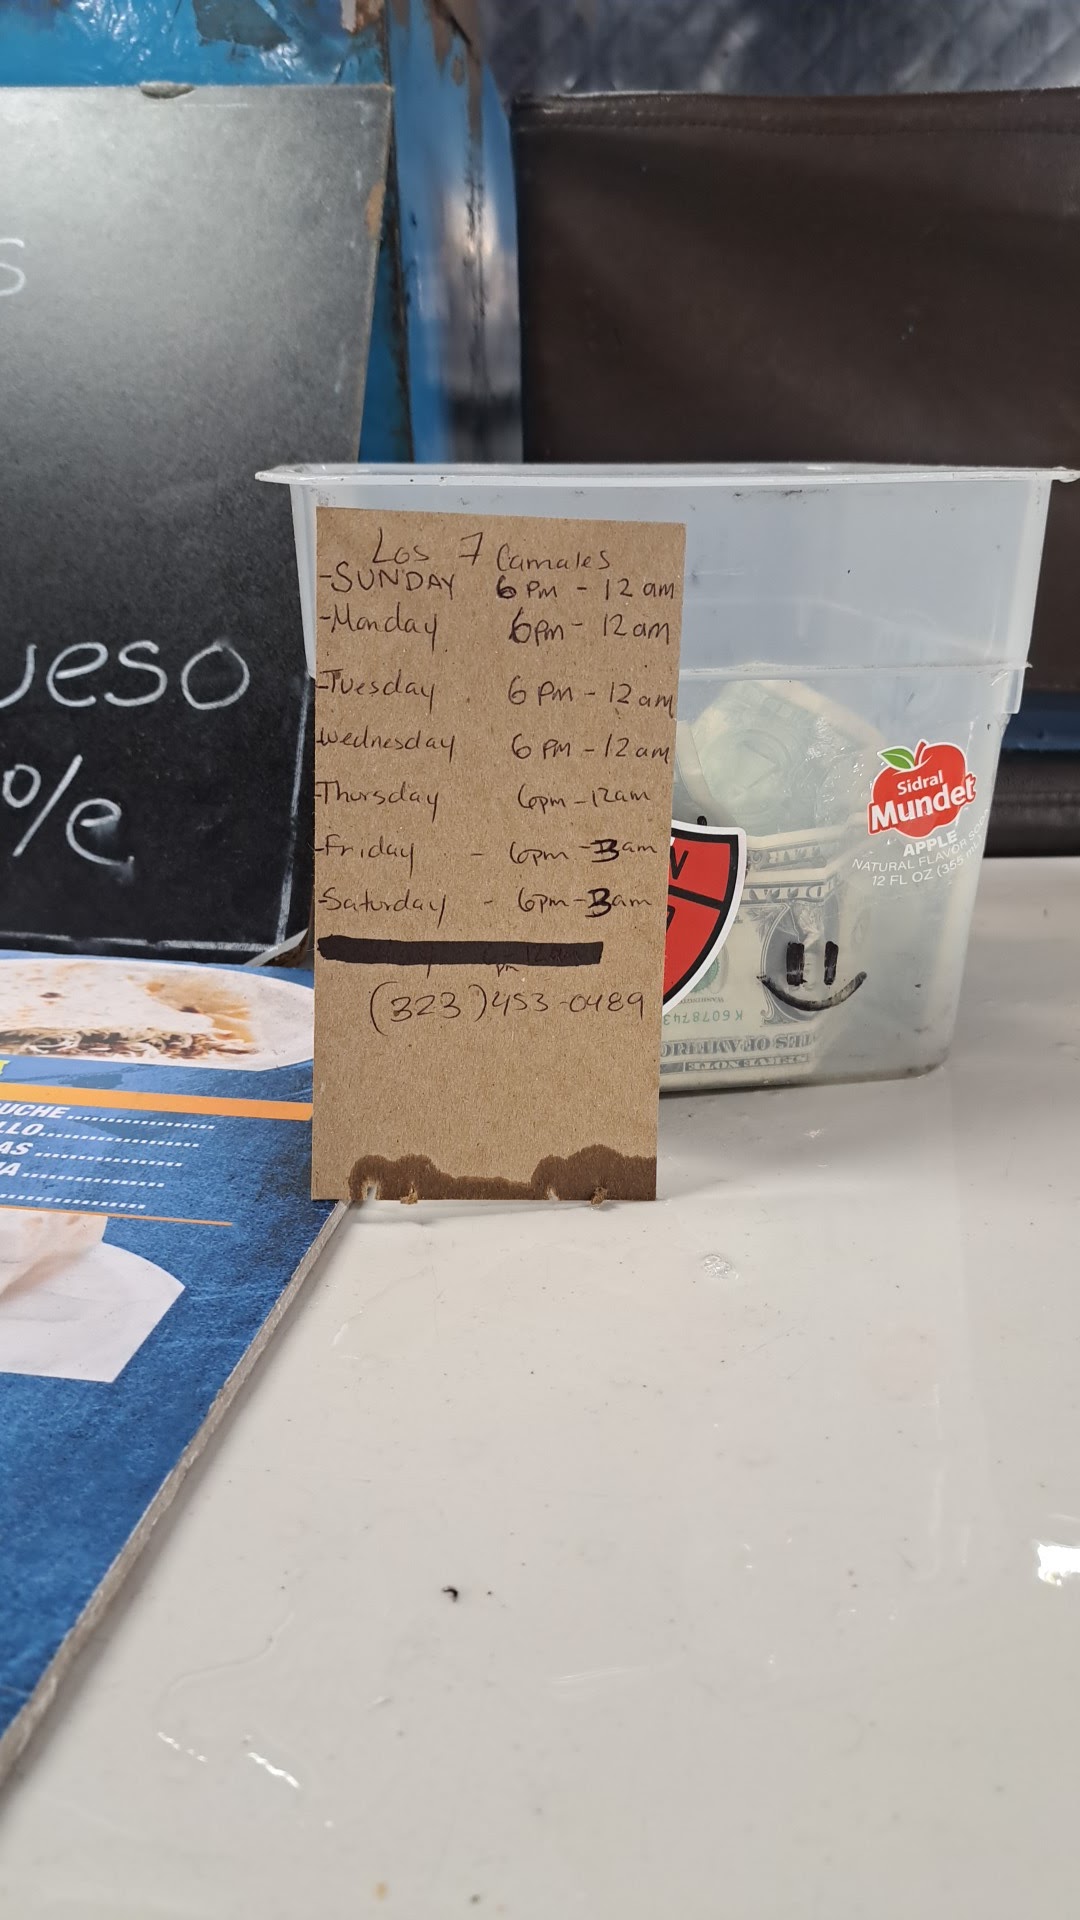 s
ueso
o/e
Los 7 Camales
-SUNDAY 6 PM - 12 am
-Monday 6pm - 12am
-Tuesday 6 PM - 12 am
-Wednesday 6 PM - 12 am
-Thursday 6pm - 12am
-Friday - 6pm - 3am
-Saturday - 6pm - 3am
(323) 453-0489
Sidral
Mundet
APPLE
NATURAL FLAVOR SO
12 FL OZ (355 m
N
K6078743
UCHE
LLO
AS
A